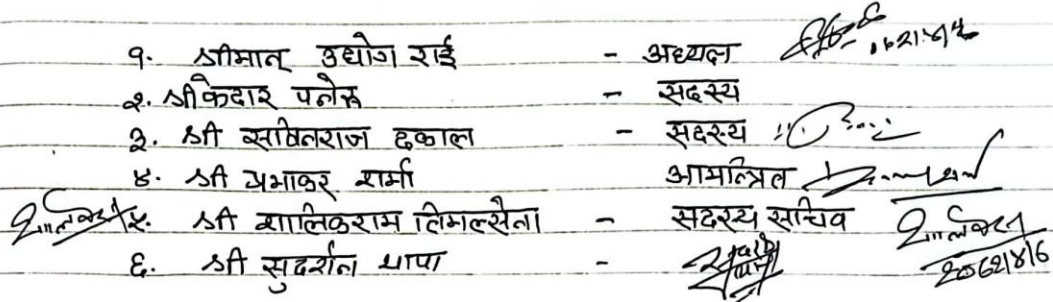 १. श्रीमान् उद्योग राई - अध्यक्ष
२. श्री केदार पनेरु - सदस्य
३. श्री सवितराज ढकाल - सदस्य
४. श्री प्रभाकर शर्मा आमन्त्रित
५. श्री शालिकराम तिमल्सेना - सदस्य सचिव
६. श्री सुदर्शन थापा -